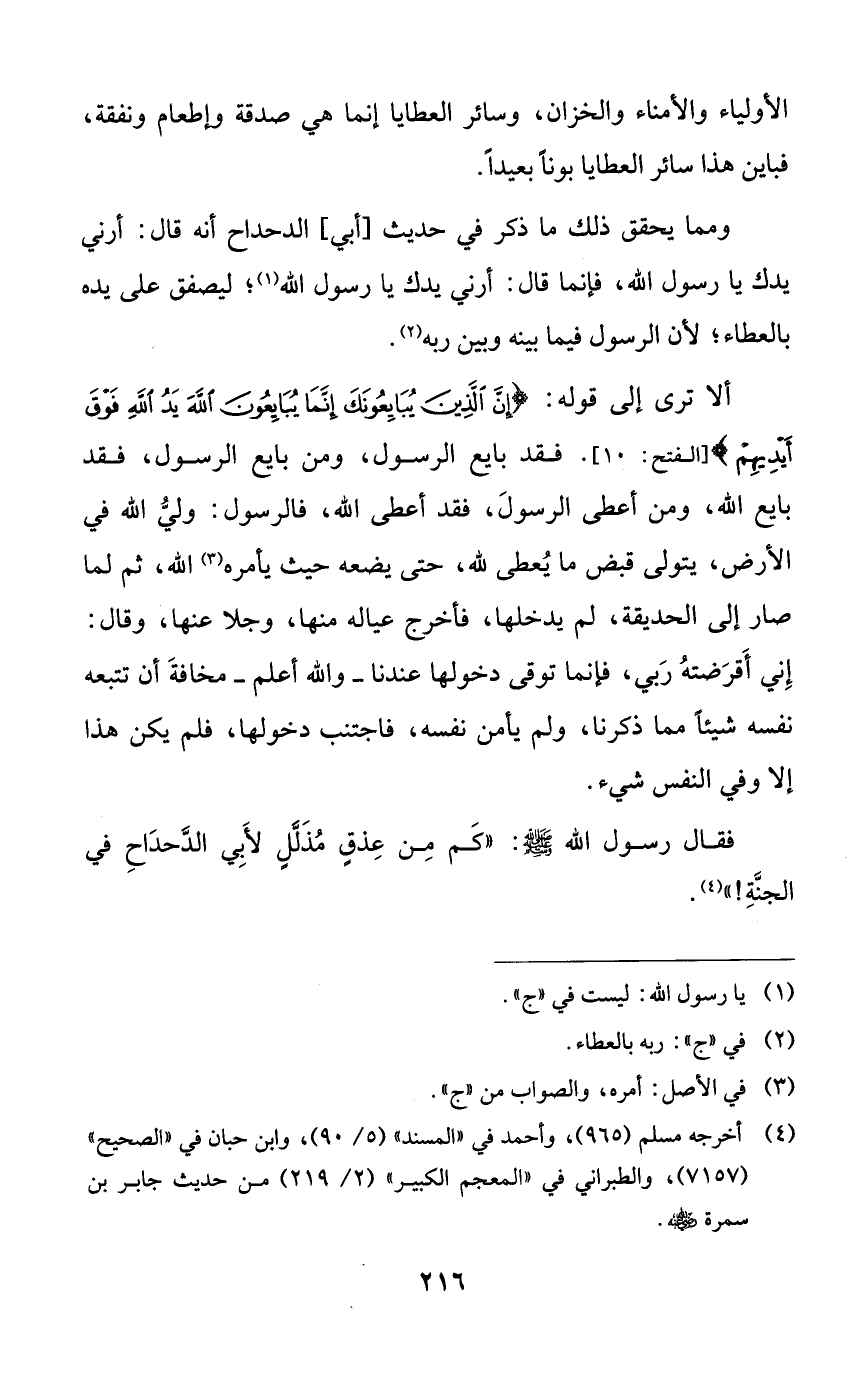 الأولياء والأمناء والخزان، وسائر العطايا إنما هي صدقة وإطعام ونفقة،
فباين هذا سائر العطايا بوناً بعيداً.
ومما يحقق ذلك ما ذكر في حديث [أبي] الدحداح أنه قال: أرني
يدك يا رسول الله، فإنما قال: أرني يدك يا رسول الله(١)؛ ليصفق على يده
بالعطاء؛ لأن الرسول فيما بينه وبين ربه(٢).
ألا ترى إلى قوله: ﴿إِنَّ ٱلَّذِينَ يُبَايِعُونَكَ إِنَّمَا يُبَايِعُونَ ٱللَّهَ يَدُ ٱللَّهِ فَوْقَ
أَيْدِيهِمْ﴾[الفتح: ١٠]. فقد بايع الرسول، ومن بايع الرسول، فقد
بايع الله، ومن أعطى الرسولَ، فقد أعطى الله، فالرسول: وليُّ الله في
الأرض، يتولى قبض ما يُعطى لله، حتى يضعه حيث يأمره(٣) الله، ثم لما
صار إلى الحديقة، لم يدخلها، فأخرج عياله منها، وجلا عنها، وقال:
إِني أَقرَضتهُ رَبي، فإنما توقى دخولها عندنا ـ والله أعلم ـ مخافةَ أن تتبعه
نفسه شيئاً مما ذكرنا، ولم يأمن نفسه، فاجتنب دخولها، فلم يكن هذا
إلا وفي النفس شيء.
فقال رسول الله ﷺ: «كَم مِن عِذقٍ مُذَلَّلٍ لأَبِي الدَّحدَاحِ في
الجنَّةِ!»(٤).
(١) يا رسول الله: ليست في «ج».
(٢) في «ج»: ربه بالعطاء.
(٣) في الأصل: أمره، والصواب من «ج».
(٤) أخرجه مسلم (٩٦٥)، وأحمد في «المسند» (٥/ ٩٠)، وابن حبان في «الصحيح»
(٧١٥٧)، والطبراني في «المعجم الكبير» (٢/ ٢١٩) من حديث جابر بن
سمرة ﵁.
٢١٦